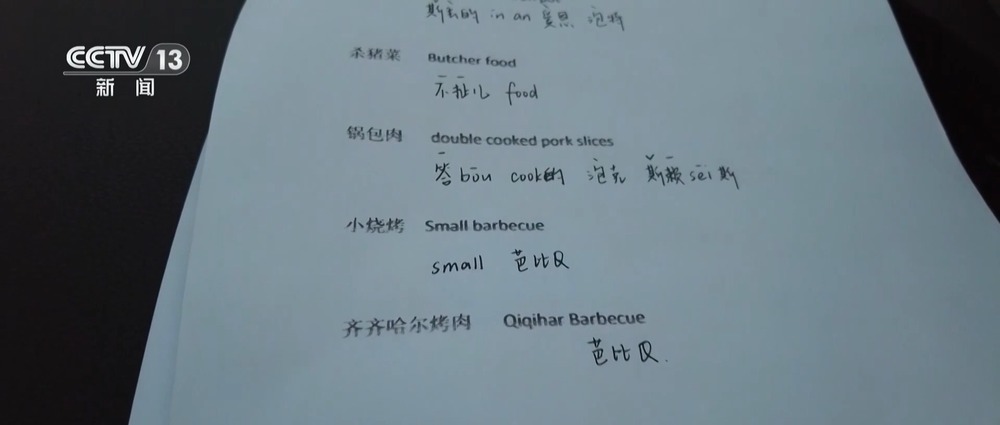 CCTV 13
新闻
in an 泡
杀猪菜 Butcher food
不扯儿 food
锅包肉 double cooked pork slices
答bōu cook的 泡克 斯赖sei斯
小烧烤 Small barbecue
small 芭比Q
齐齐哈尔烤肉 Qiqihar Barbecue
芭比Q.